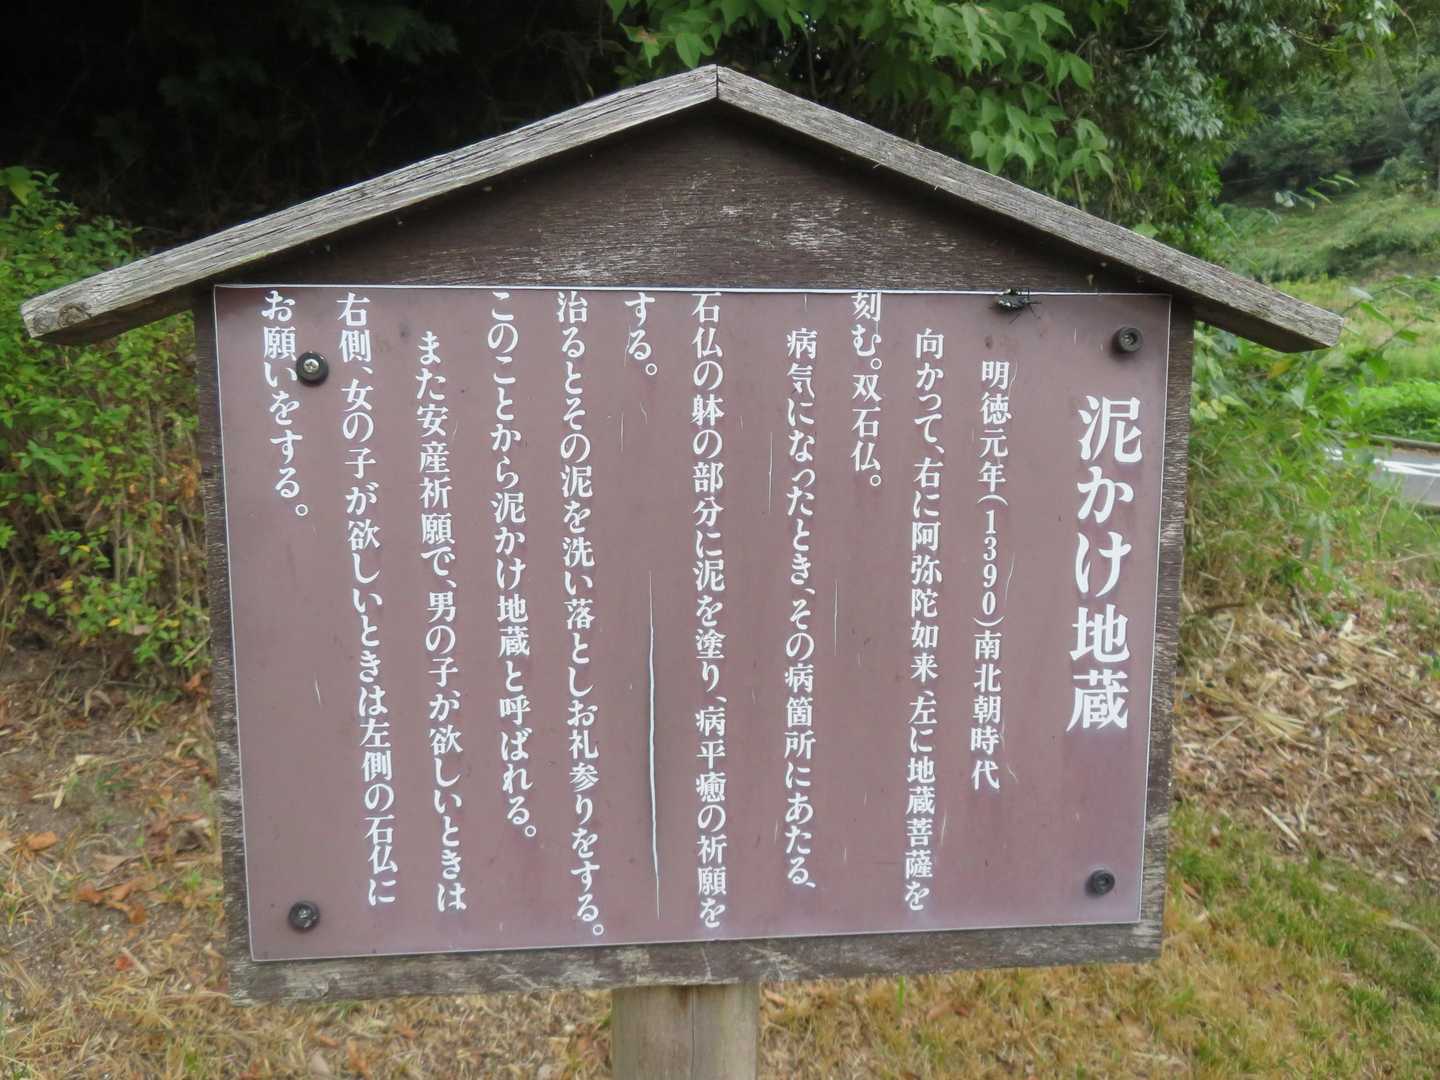 泥かけ地蔵
明徳元年(1390)南北朝時代
向かって、右に阿弥陀如来、左に地蔵菩薩を
刻む。双石仏。
病気になったとき、その病箇所にあたる、
石仏の躰の部分に泥を塗り、病平癒の祈願を
する。
治るとその泥を洗い落としお礼参りをする。
このことから泥かけ地蔵と呼ばれる。
また安産祈願で、男の子が欲しいときは
右側、女の子が欲しいときは左側の石仏に
お願いをする。